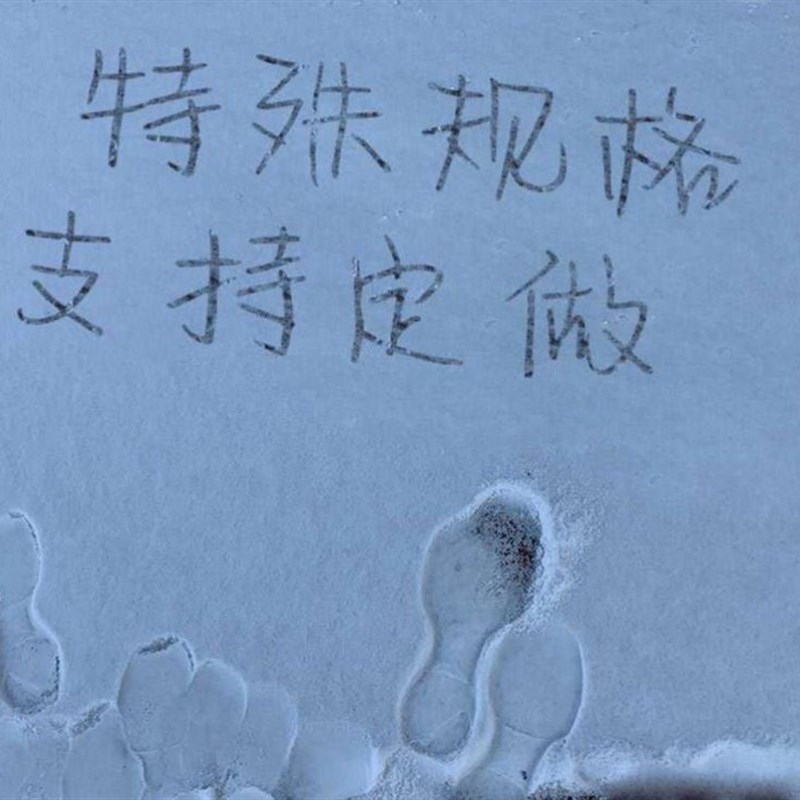 特殊规格
支持定做